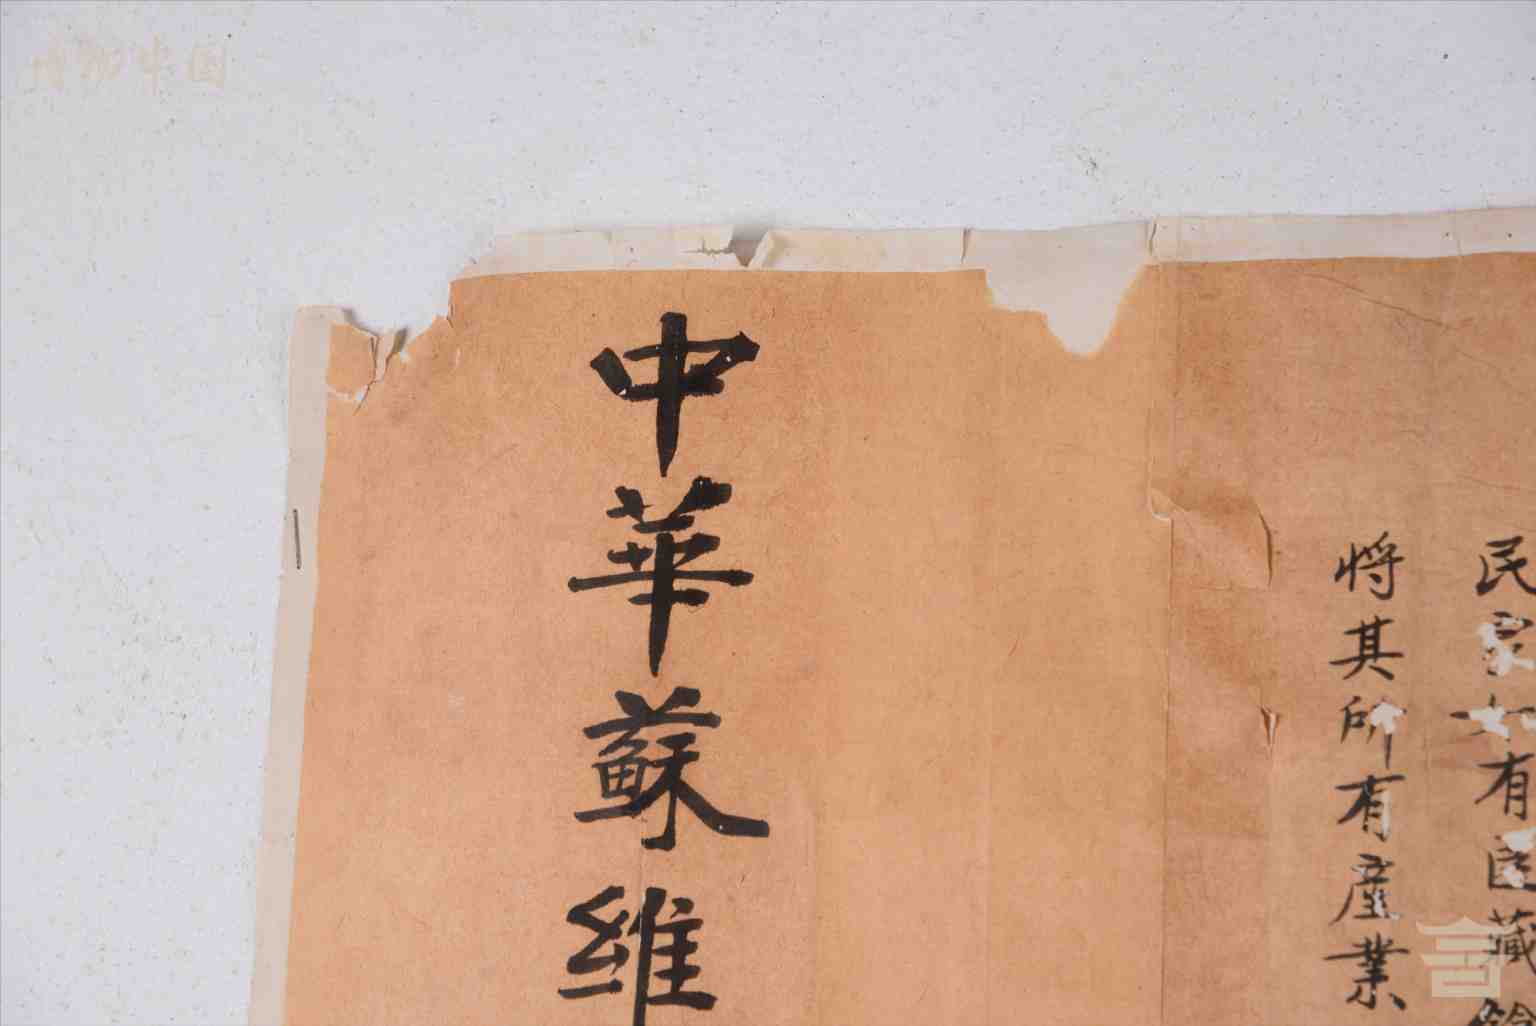 民家如有匿藏
将其所有產業
中華蘇維
博物中国